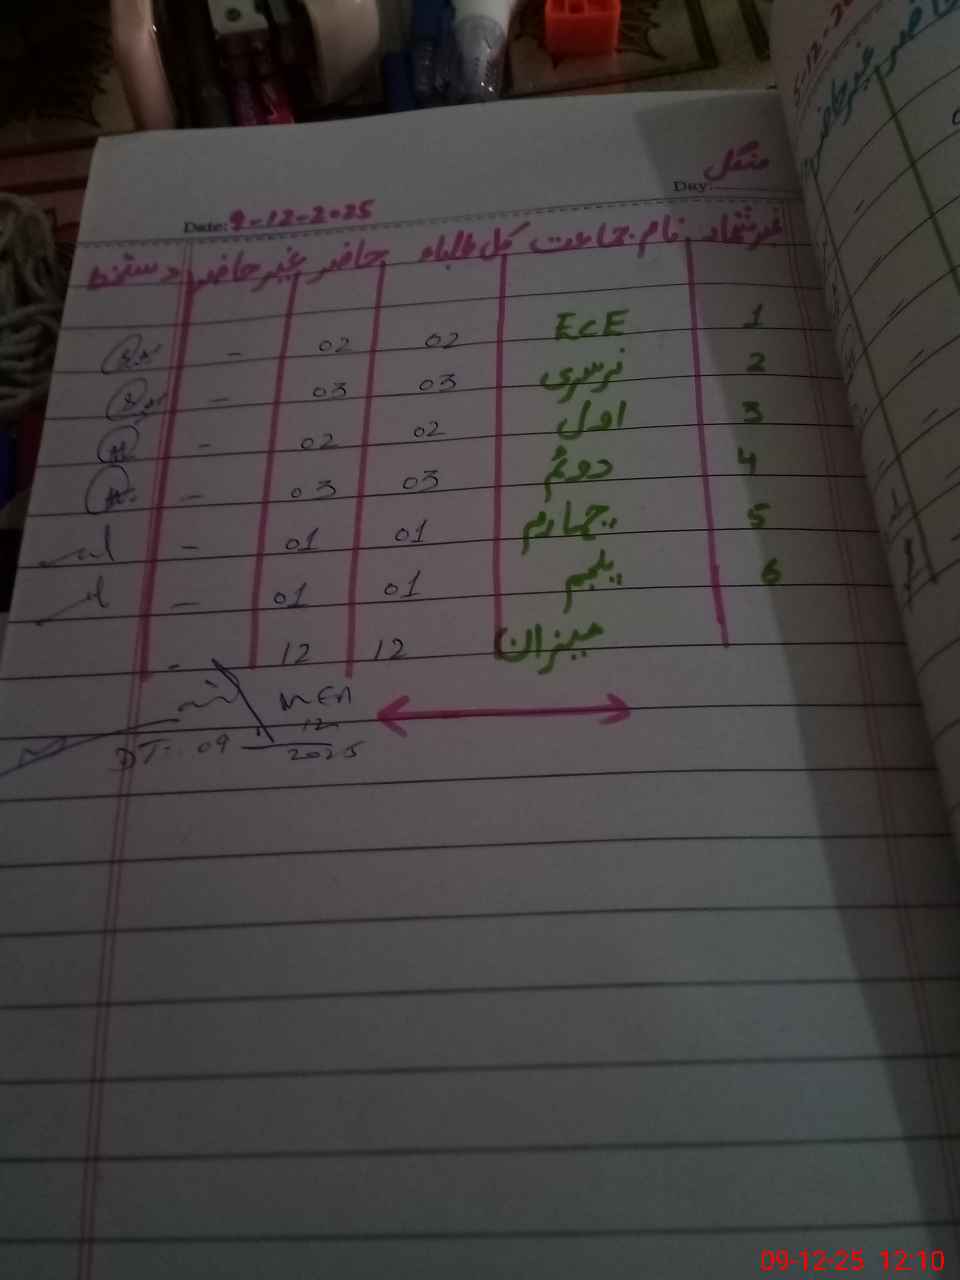 Day: منگل
Date: 9-12-2025
نمبر شمار نام جماعت کل طلباء حاضر غیر حاضر دستخط
1 ECE 02 02 -
2 نرسری 03 03 -
3 اول 02 02 -
4 دوئم 03 03 -
5 چہارم 01 01 -
6 پنجم 01 01 -
میزان 12 12 -
MEA
DT: 09
12
2025
5-12-20
حاضر غیر حاضر
09-12-25 12:10